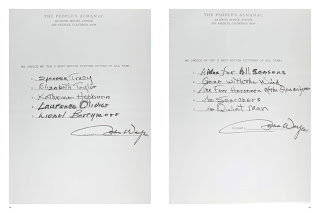 THE PEOPLE'S ALMANAC
MY CHOICE OF THE 5 BEST MOTION PICTURE ACTORS OF ALL TIME:
Spencer Tracy
Elizabeth Taylor
Katharine Hepburn
Laurence Olivier
Lionel Barrymore
John Wayne
THE PEOPLE'S ALMANAC
MY CHOICE OF THE 5 BEST MOTION PICTURES OF ALL TIME:
A Man For All Seasons
Gone with the Wind
The Four Horsemen of the Apocalypse
The Searchers
The Quiet Man
John Wayne